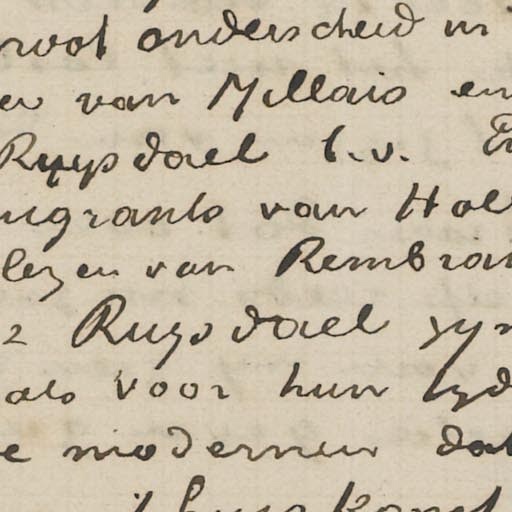 onderscheid in
van Millais en
Ruysdael b.v.
migrants van Hol
lezen van Rembran
Ruysdael zyn
als voor hun tyd
e modernen dat